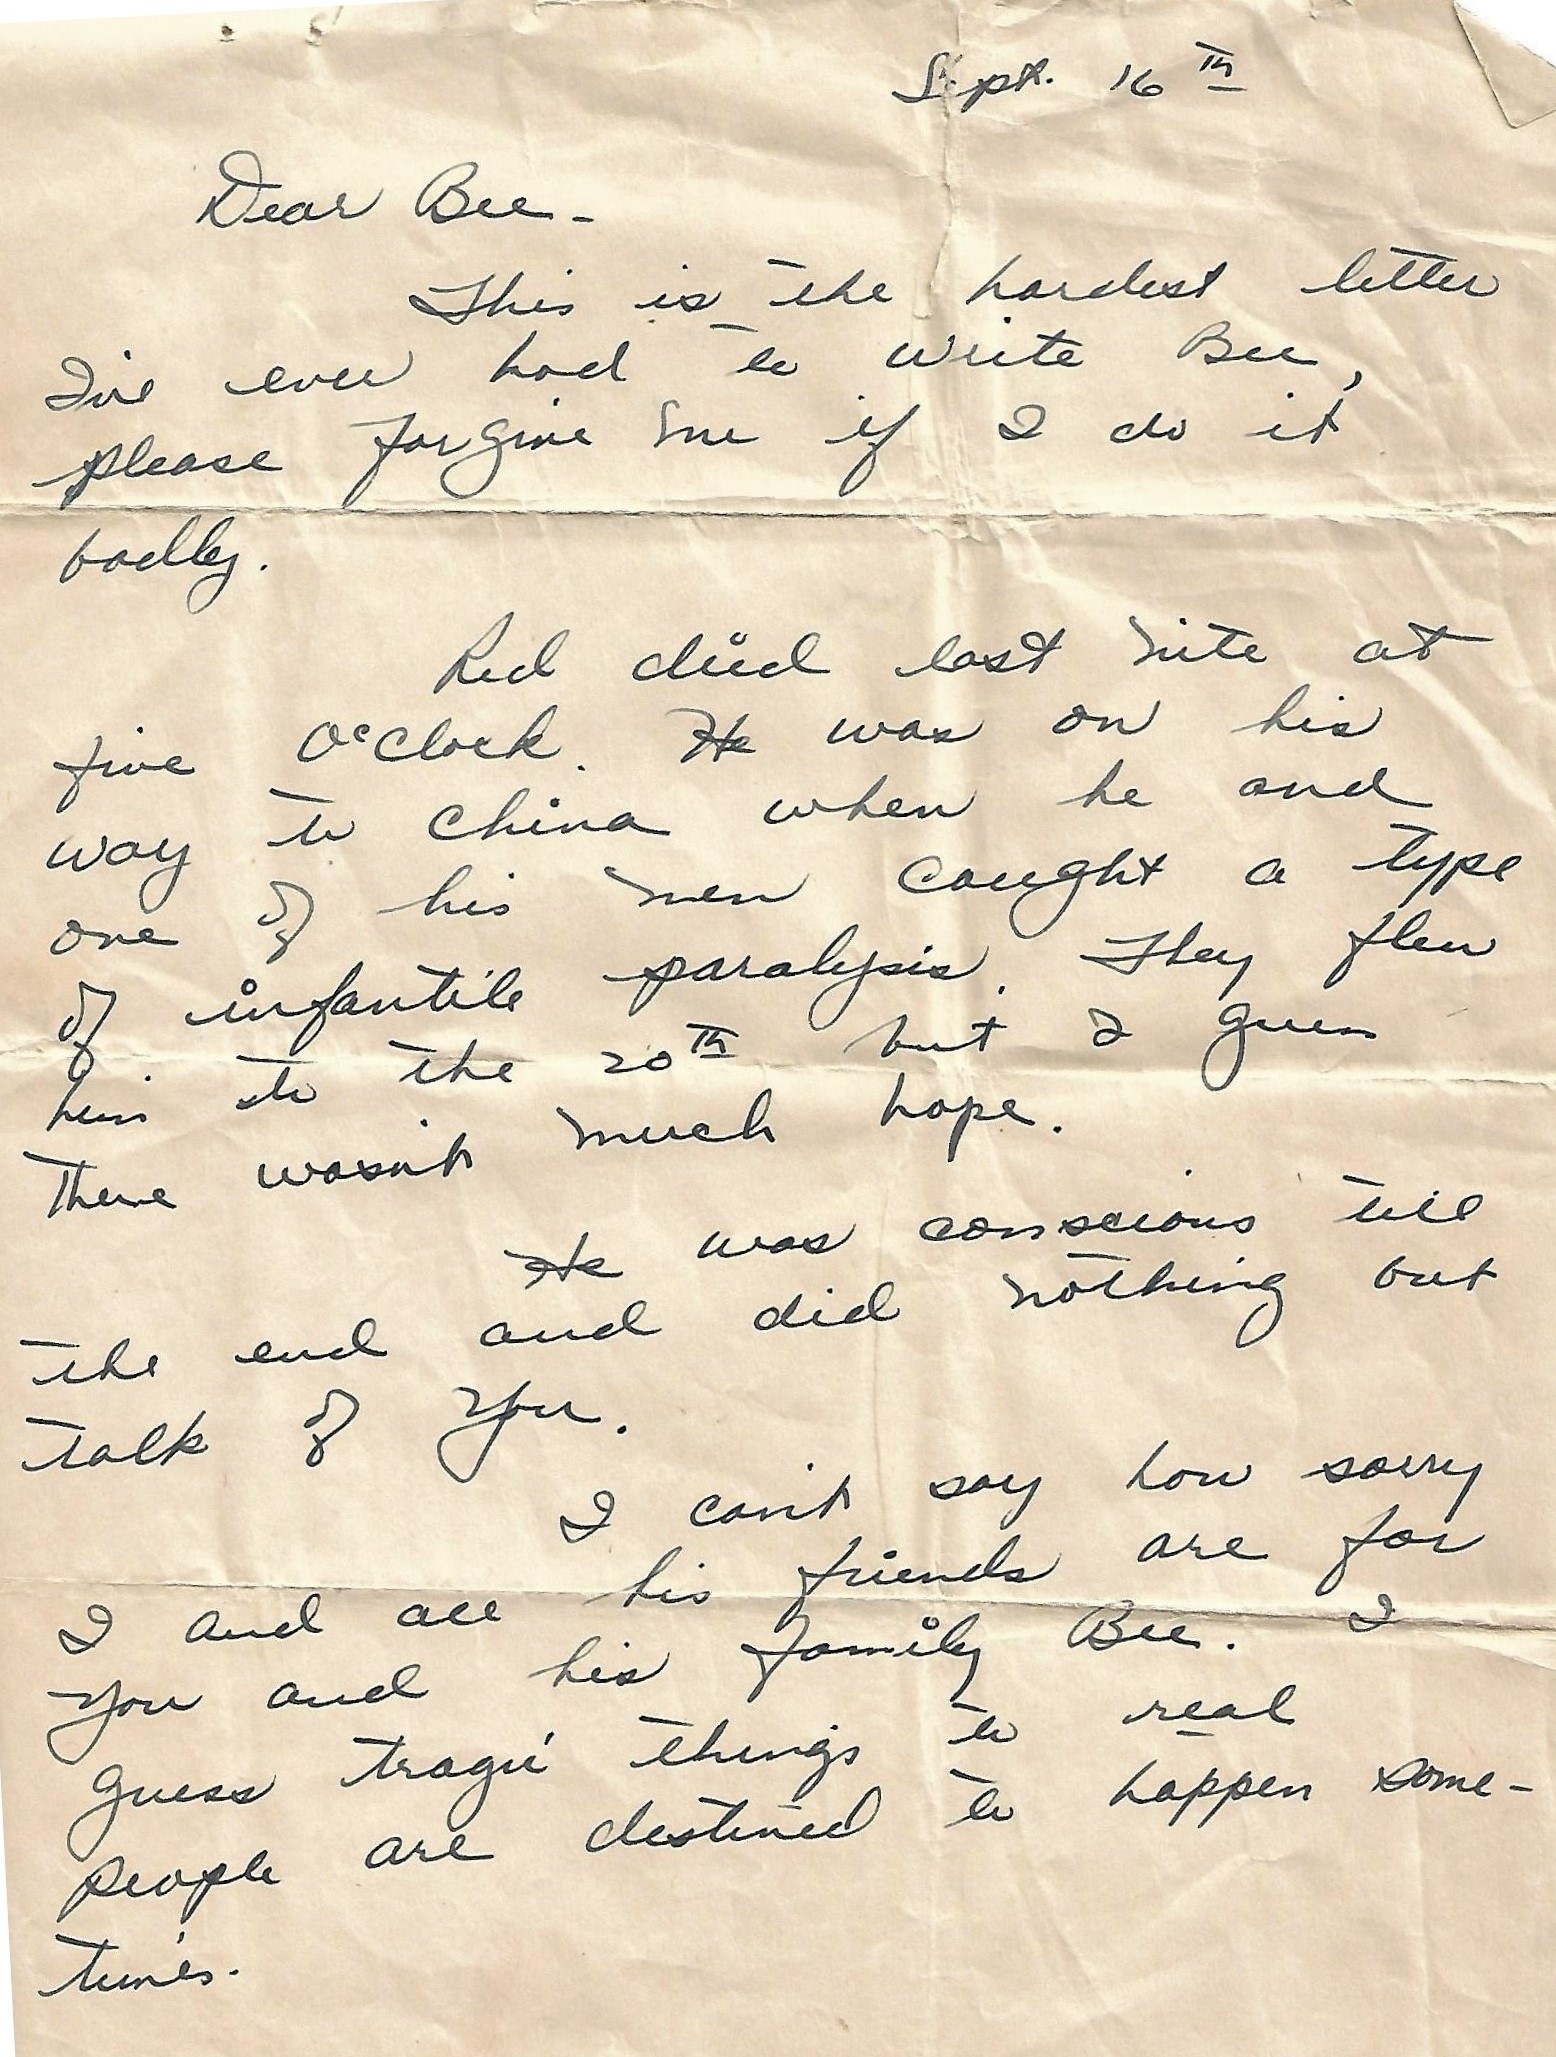 Sept. 16th
Dear Bee -
This is the hardest letter
I've ever had to write Bee,
please forgive me if I do it
badly.
Red died last nite at
five O'Clock. He was on his
way to China when he and
one of his men caught a type
of infantile paralysis. They flew
him to the 20th but I guess
there wasn't much hope.
He was conscious till
the end and did nothing but
talk of you.
I can't say how sorry
I and all his friends are for
you and his family Bee. I
guess tragic things to real
people are destined to happen some-
times.